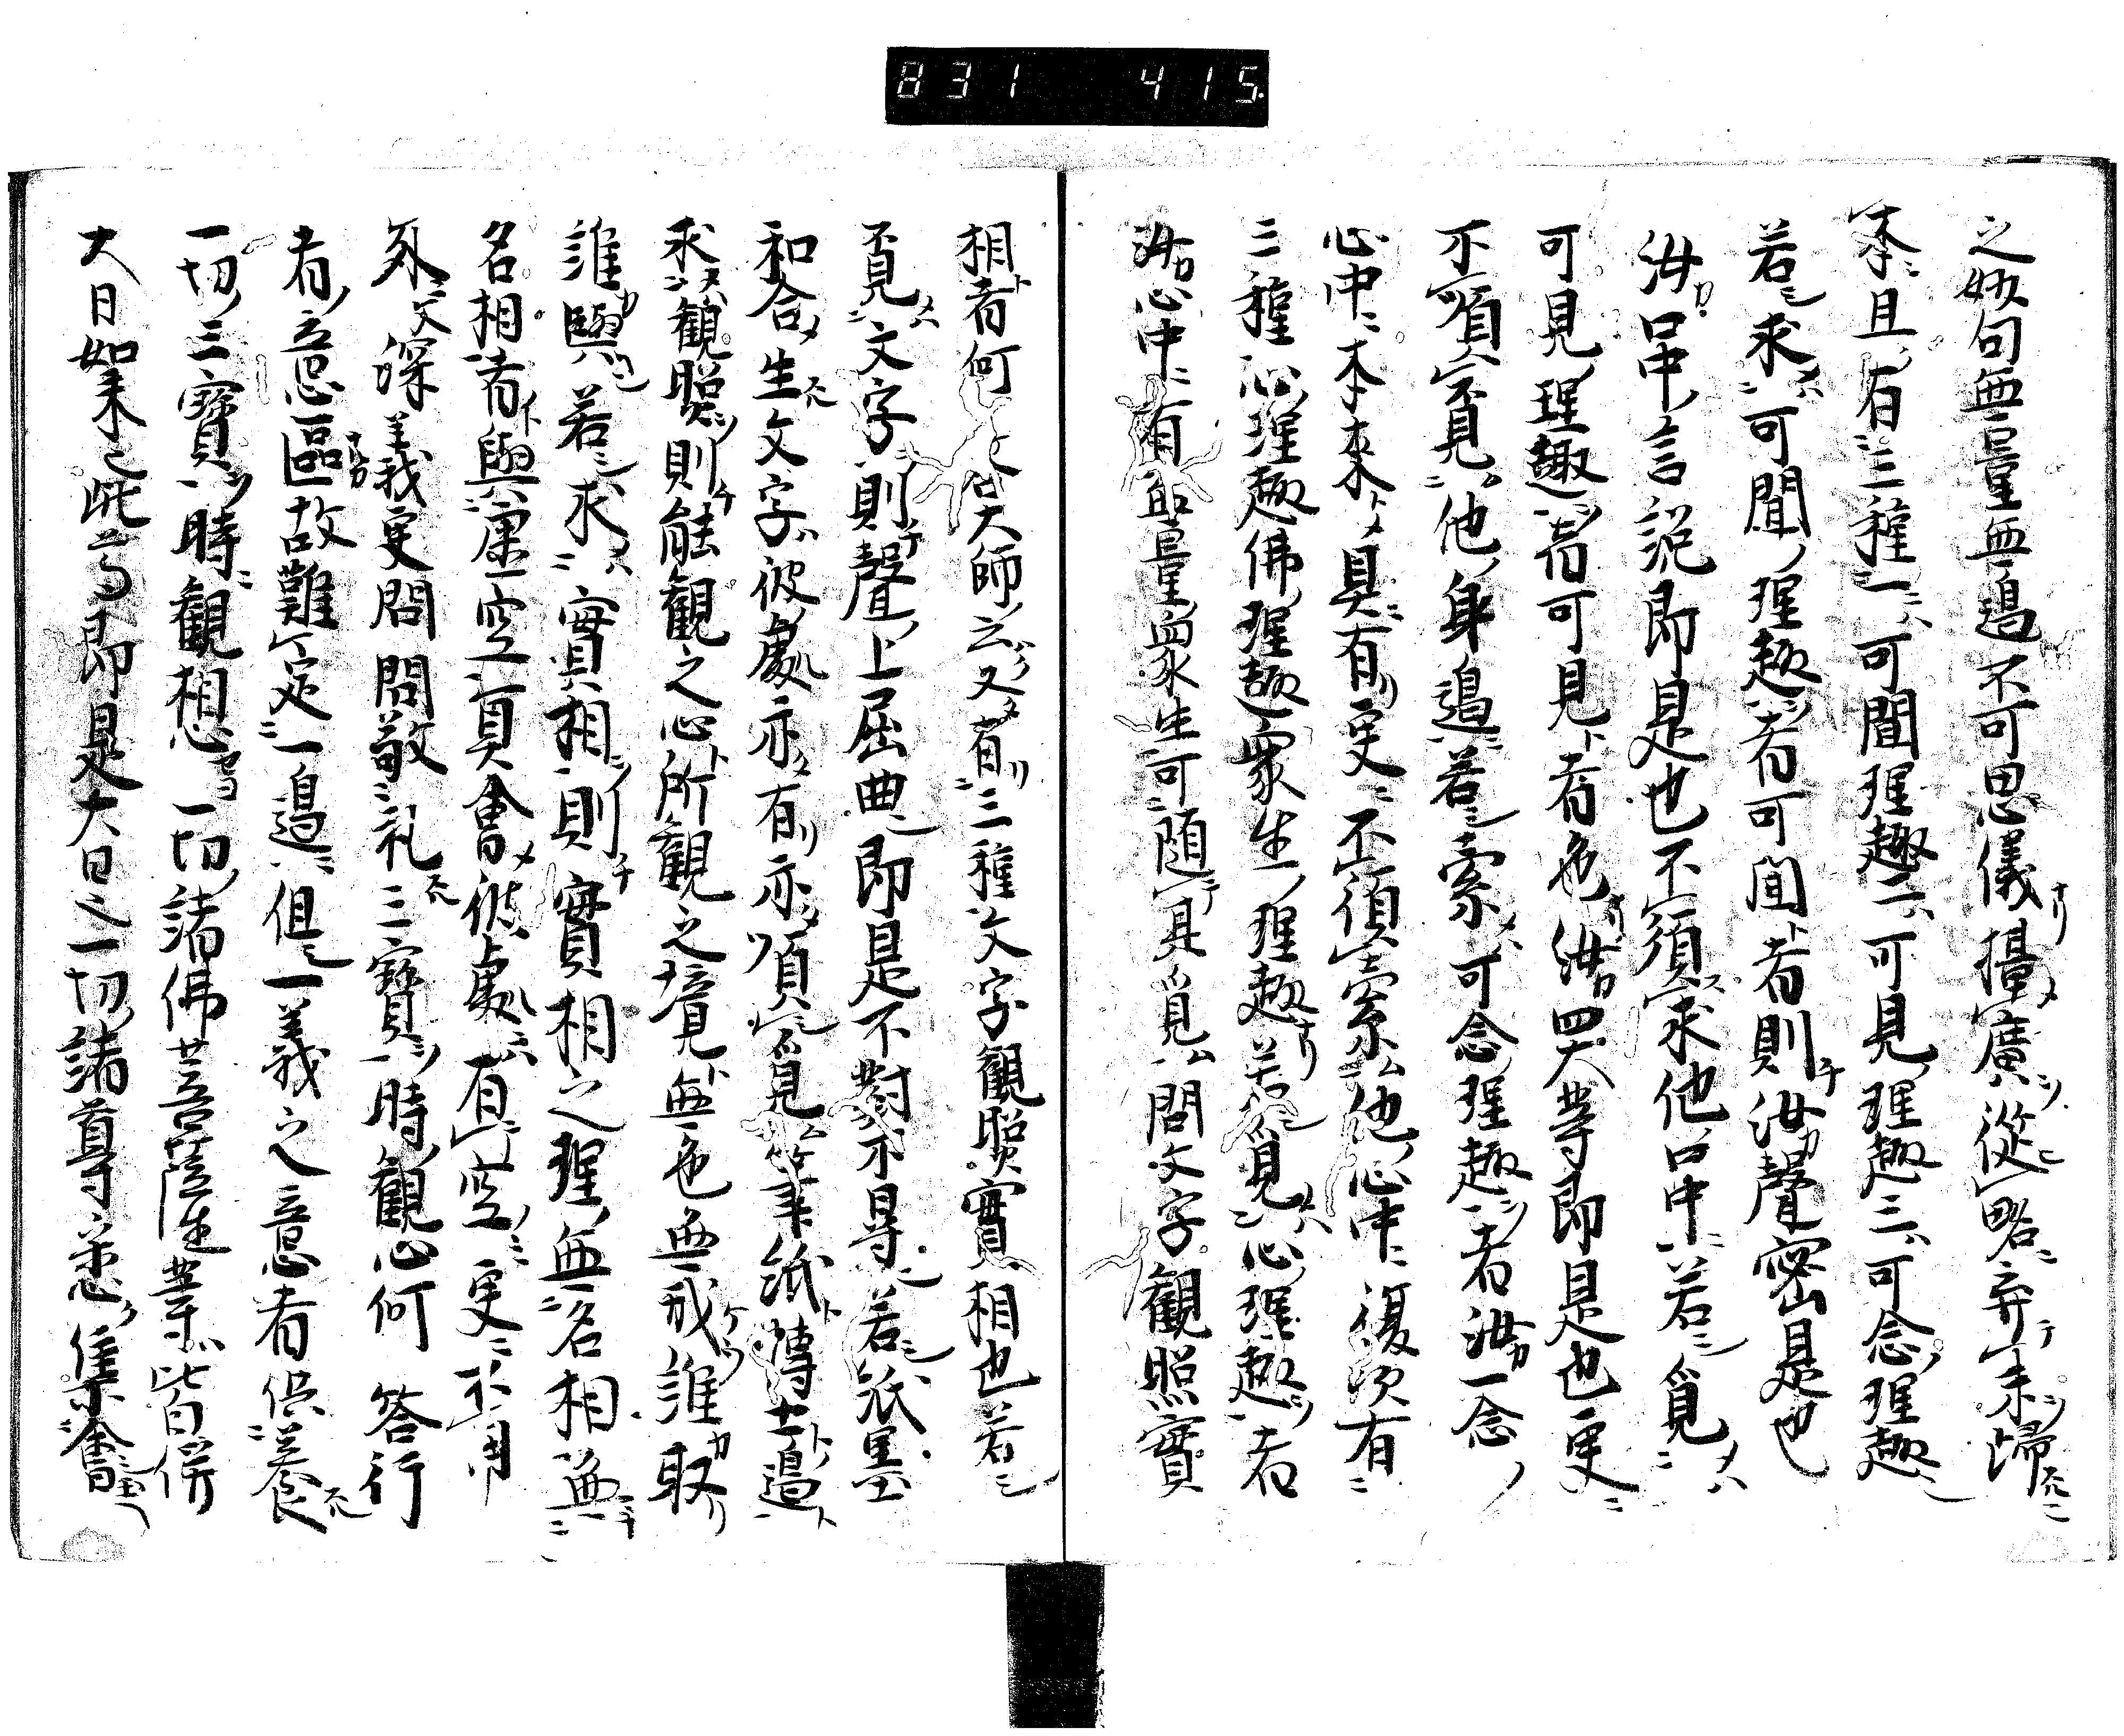 831 415.
之妙句無量無邊不可思儀攝廣從略弃末歸
本且有三種一可聞理趣二可見理趣三可念理趣
若求可聞理趣者可聞者則汝聲密是也
汝口中言説即是也不須求他口中若覓
可見理趣者可見者色汝四大等即是也更
不須覓他身邊若索可念理趣者汝一念
心中本来具有更不須索他心中復次有
三種心理趣佛理趣衆生理趣若覓心理趣者
汝心中有無量衆生可隨其覓問文字觀照實
相者何 答大師云又有三種文字觀照實相也若
覓文字則聲上屈曲即是不對不㝵若紙墨
和合生文字彼處亦有亦須覓筆紙博士邊
求觀照則能觀之心所觀之境無色無形誰取
誰與若求實相則實相之理無名相無
名相者與虚空冥會彼處有空更不用
外文深義更問問敬礼三寶時觀心何 答行
者意區故難定一邊但一義之意者供養
一切三寶時觀想一切諸佛菩薩生等皆併
大日如来已此等即是大日之一切諸尊悉集會